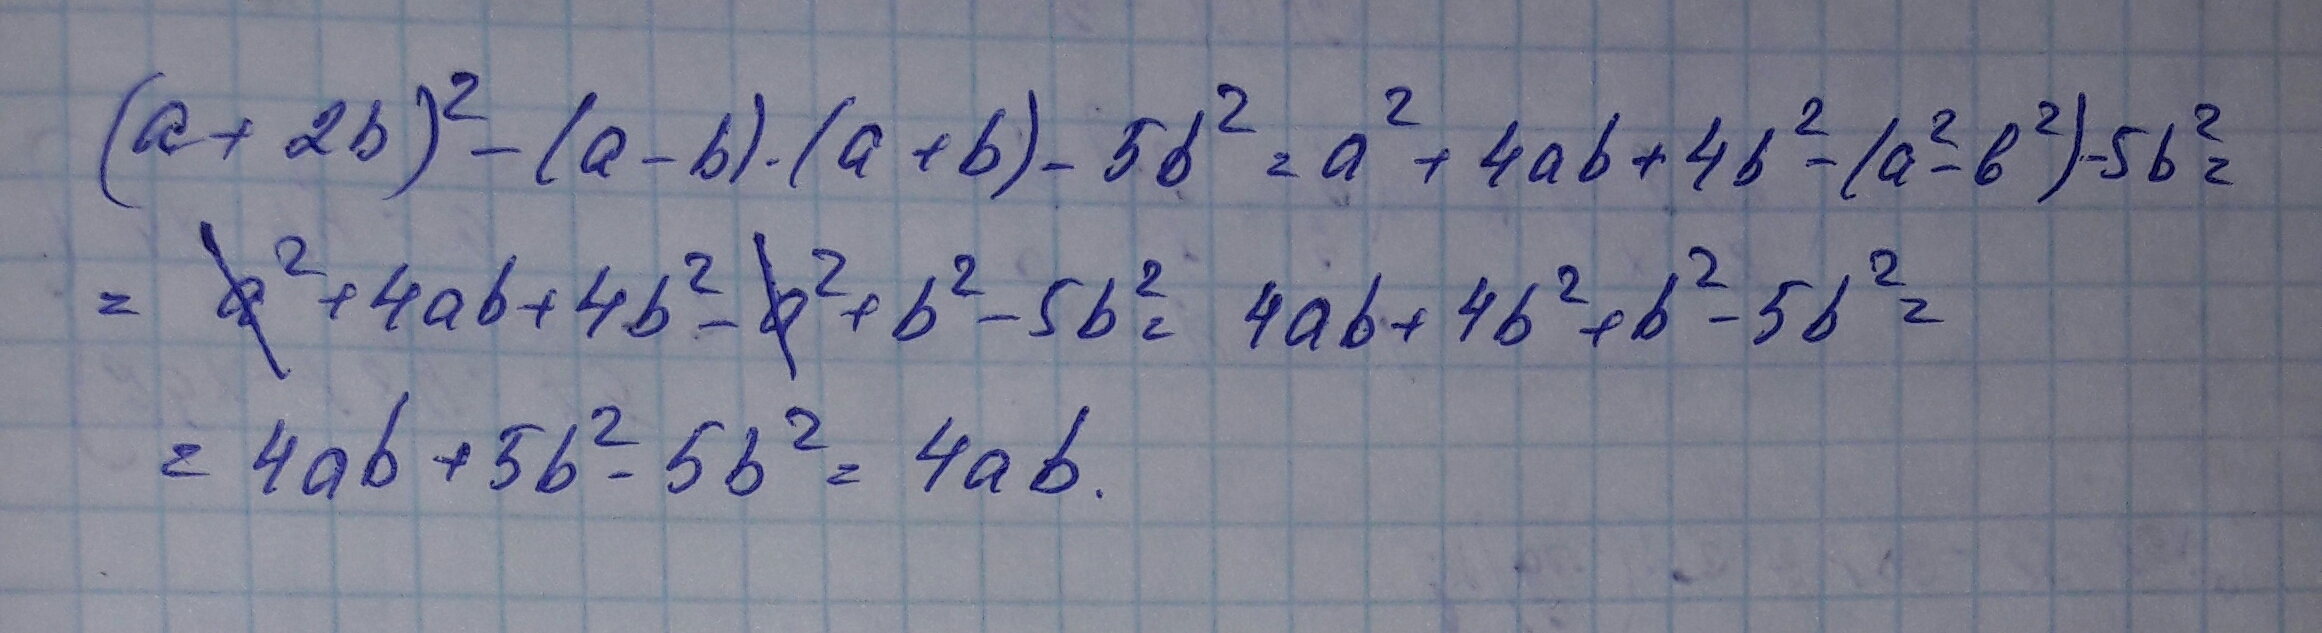 (a + 2b)² - (a - b)·(a + b) - 5b² = a² + 4ab + 4b² - (a² - b²) - 5b² =
= a² + 4ab + 4b² - a² + b² - 5b² = 4ab + 4b² + b² - 5b² =
= 4ab + 5b² - 5b² = 4ab.